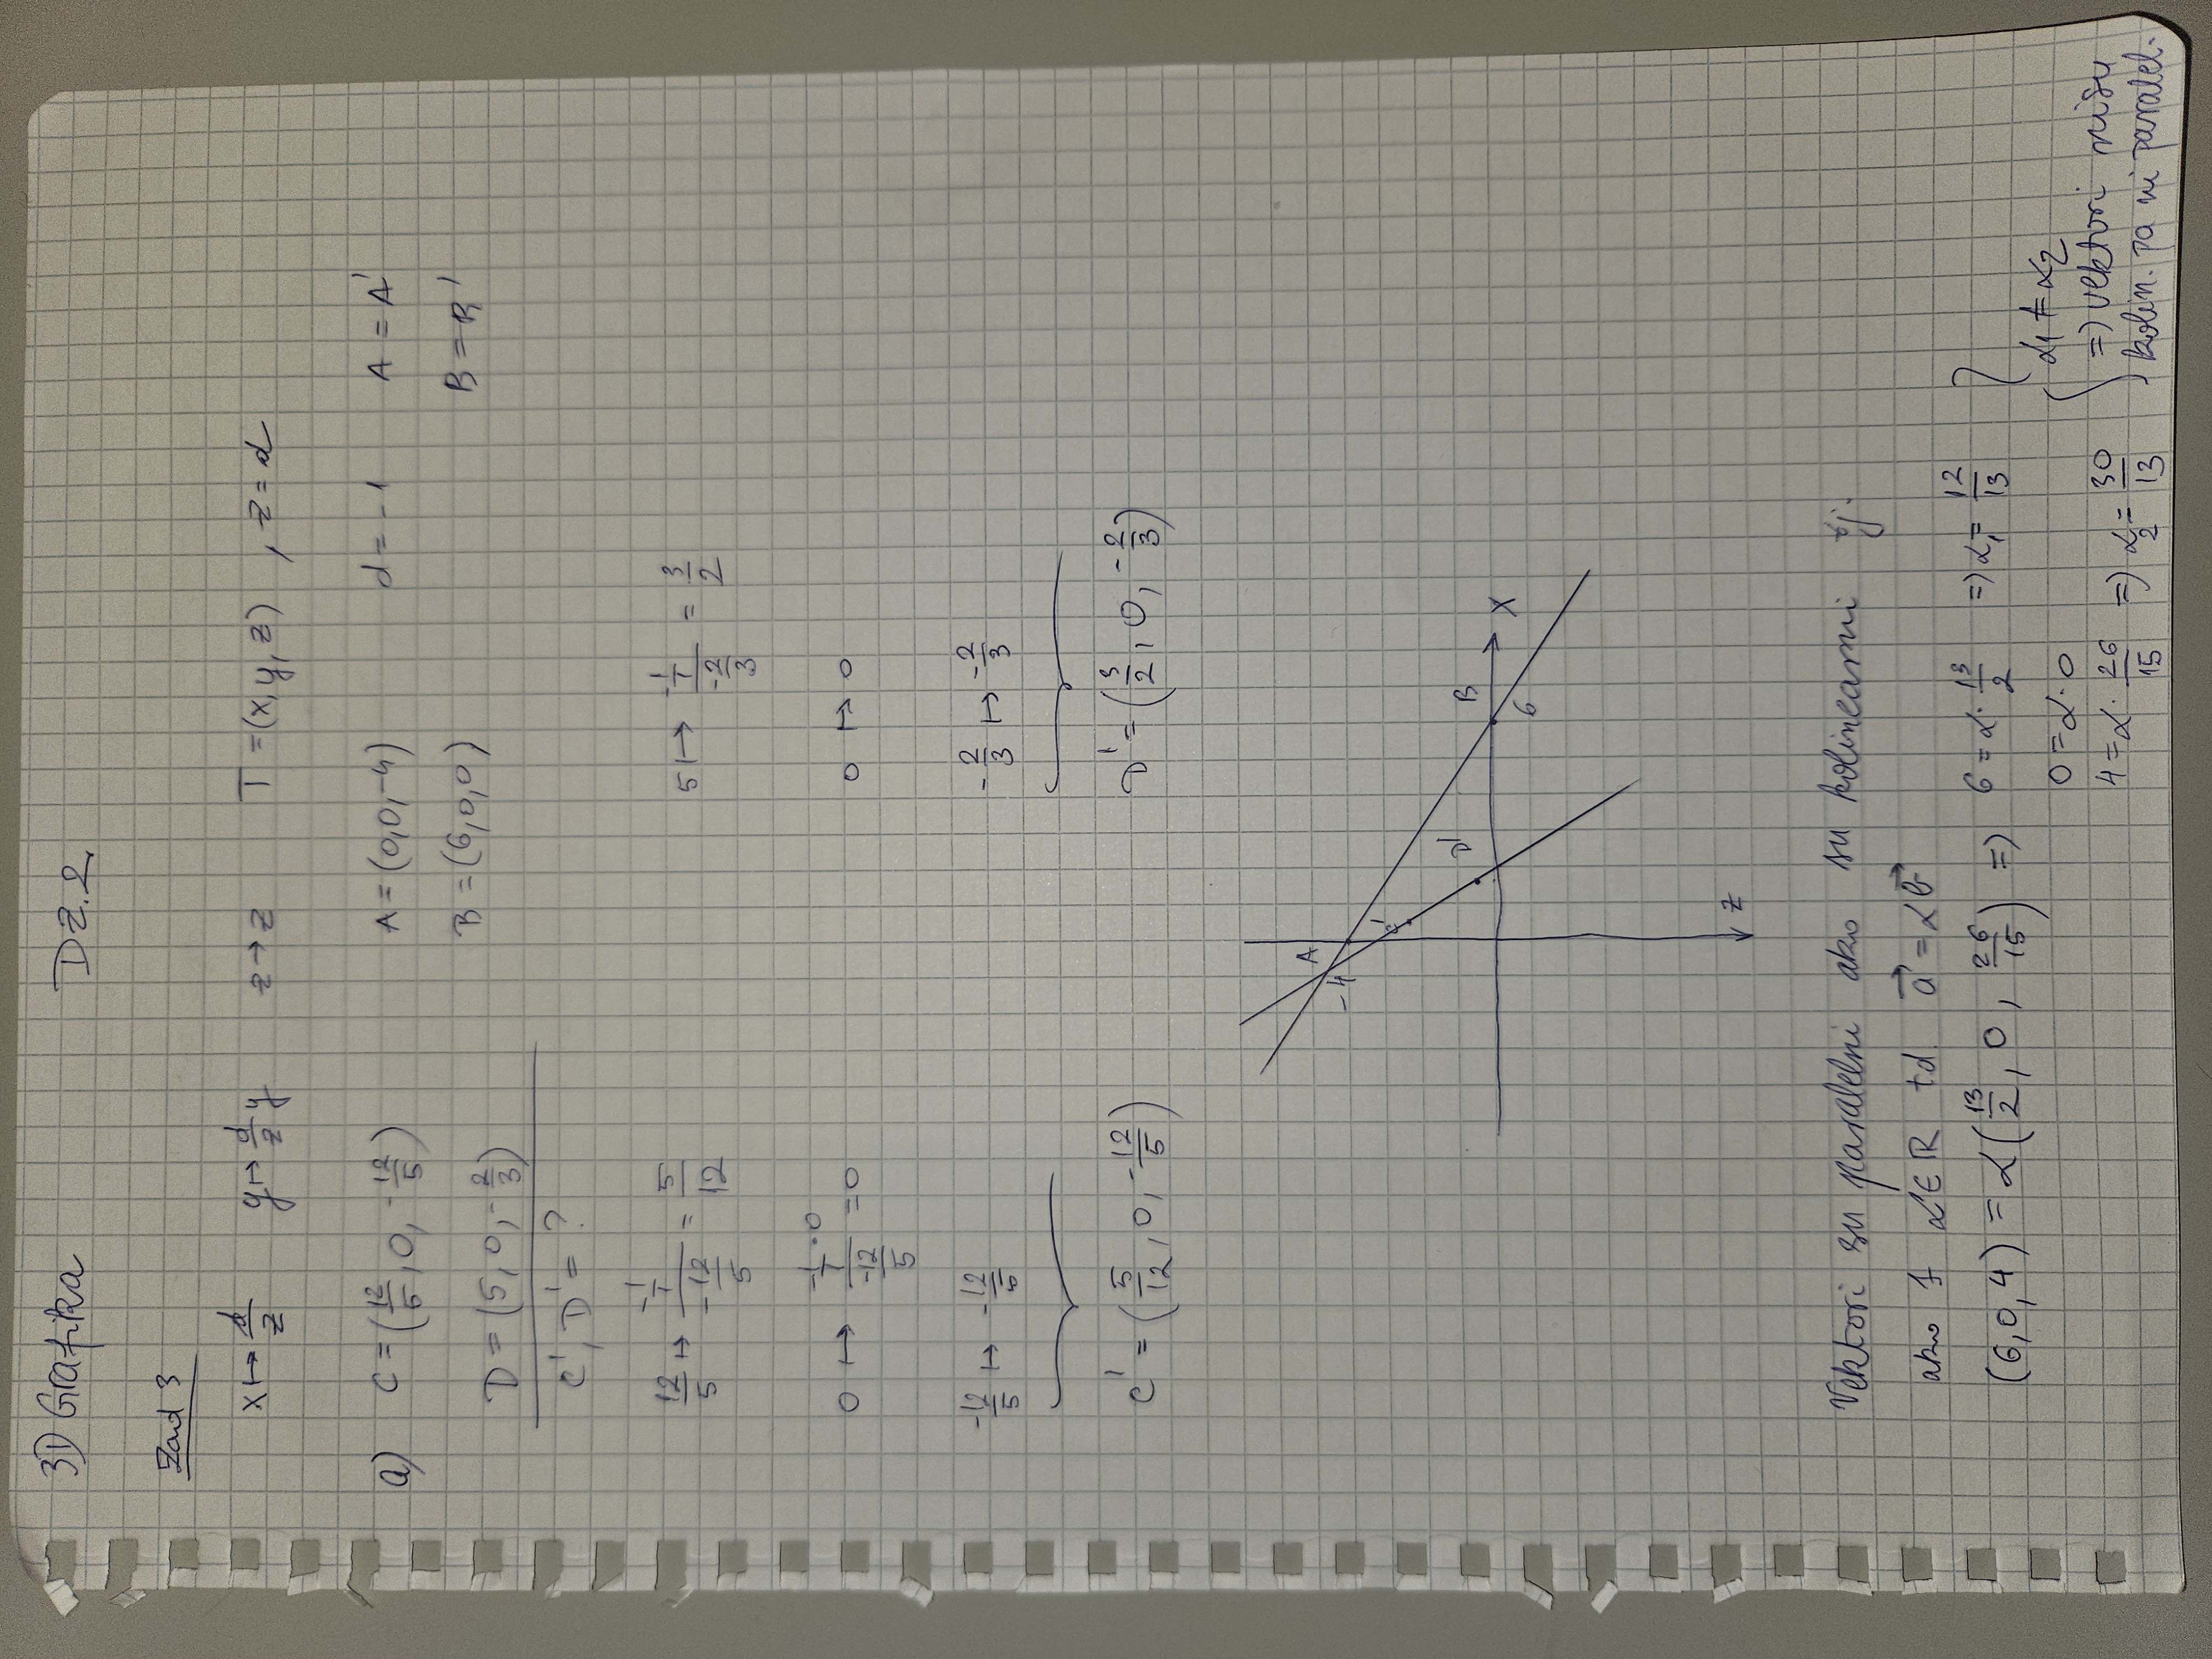 3D Grafika DZ.2.
Zad 3
x ↦ d/z y ↦ d/z y z → z T = (x, y, z) , z = d
a) C = (12/5, 0, -12/5) A = (0, 0, -4) d = -1 A = A'
B = (6, 0, 0) B = B'
D = (5, 0, -2/3)
C', D' = ?
12/5 ↦ (-1/1)/(-12/5) = 5/12 5 ↦ (-1/1)/(-2/3) = 3/2
0 ↦ (-1/1 · 0)/(-12/5) = 0 0 ↦ 0
-12/5 ↦ -12/5 -2/3 ↦ -2/3
C' = (5/12, 0, -12/5) D' = (3/2, 0, -2/3)
A
-4
C'
D' B
X
6
Z
Vektori su paralelni ako su kolinearni tj.
ako ∃ α∈R td. a⃗ = αb⃗
(6, 0, 4) = α(13/2, 0, 26/15) => 6 = α · 13/2 => α₁ = 12/13
0 = α · 0 α₁ ≠ α₂
4 = α · 26/15 => α₂ = 30/13 => vektori nisu
kolin. pa ni paralel.